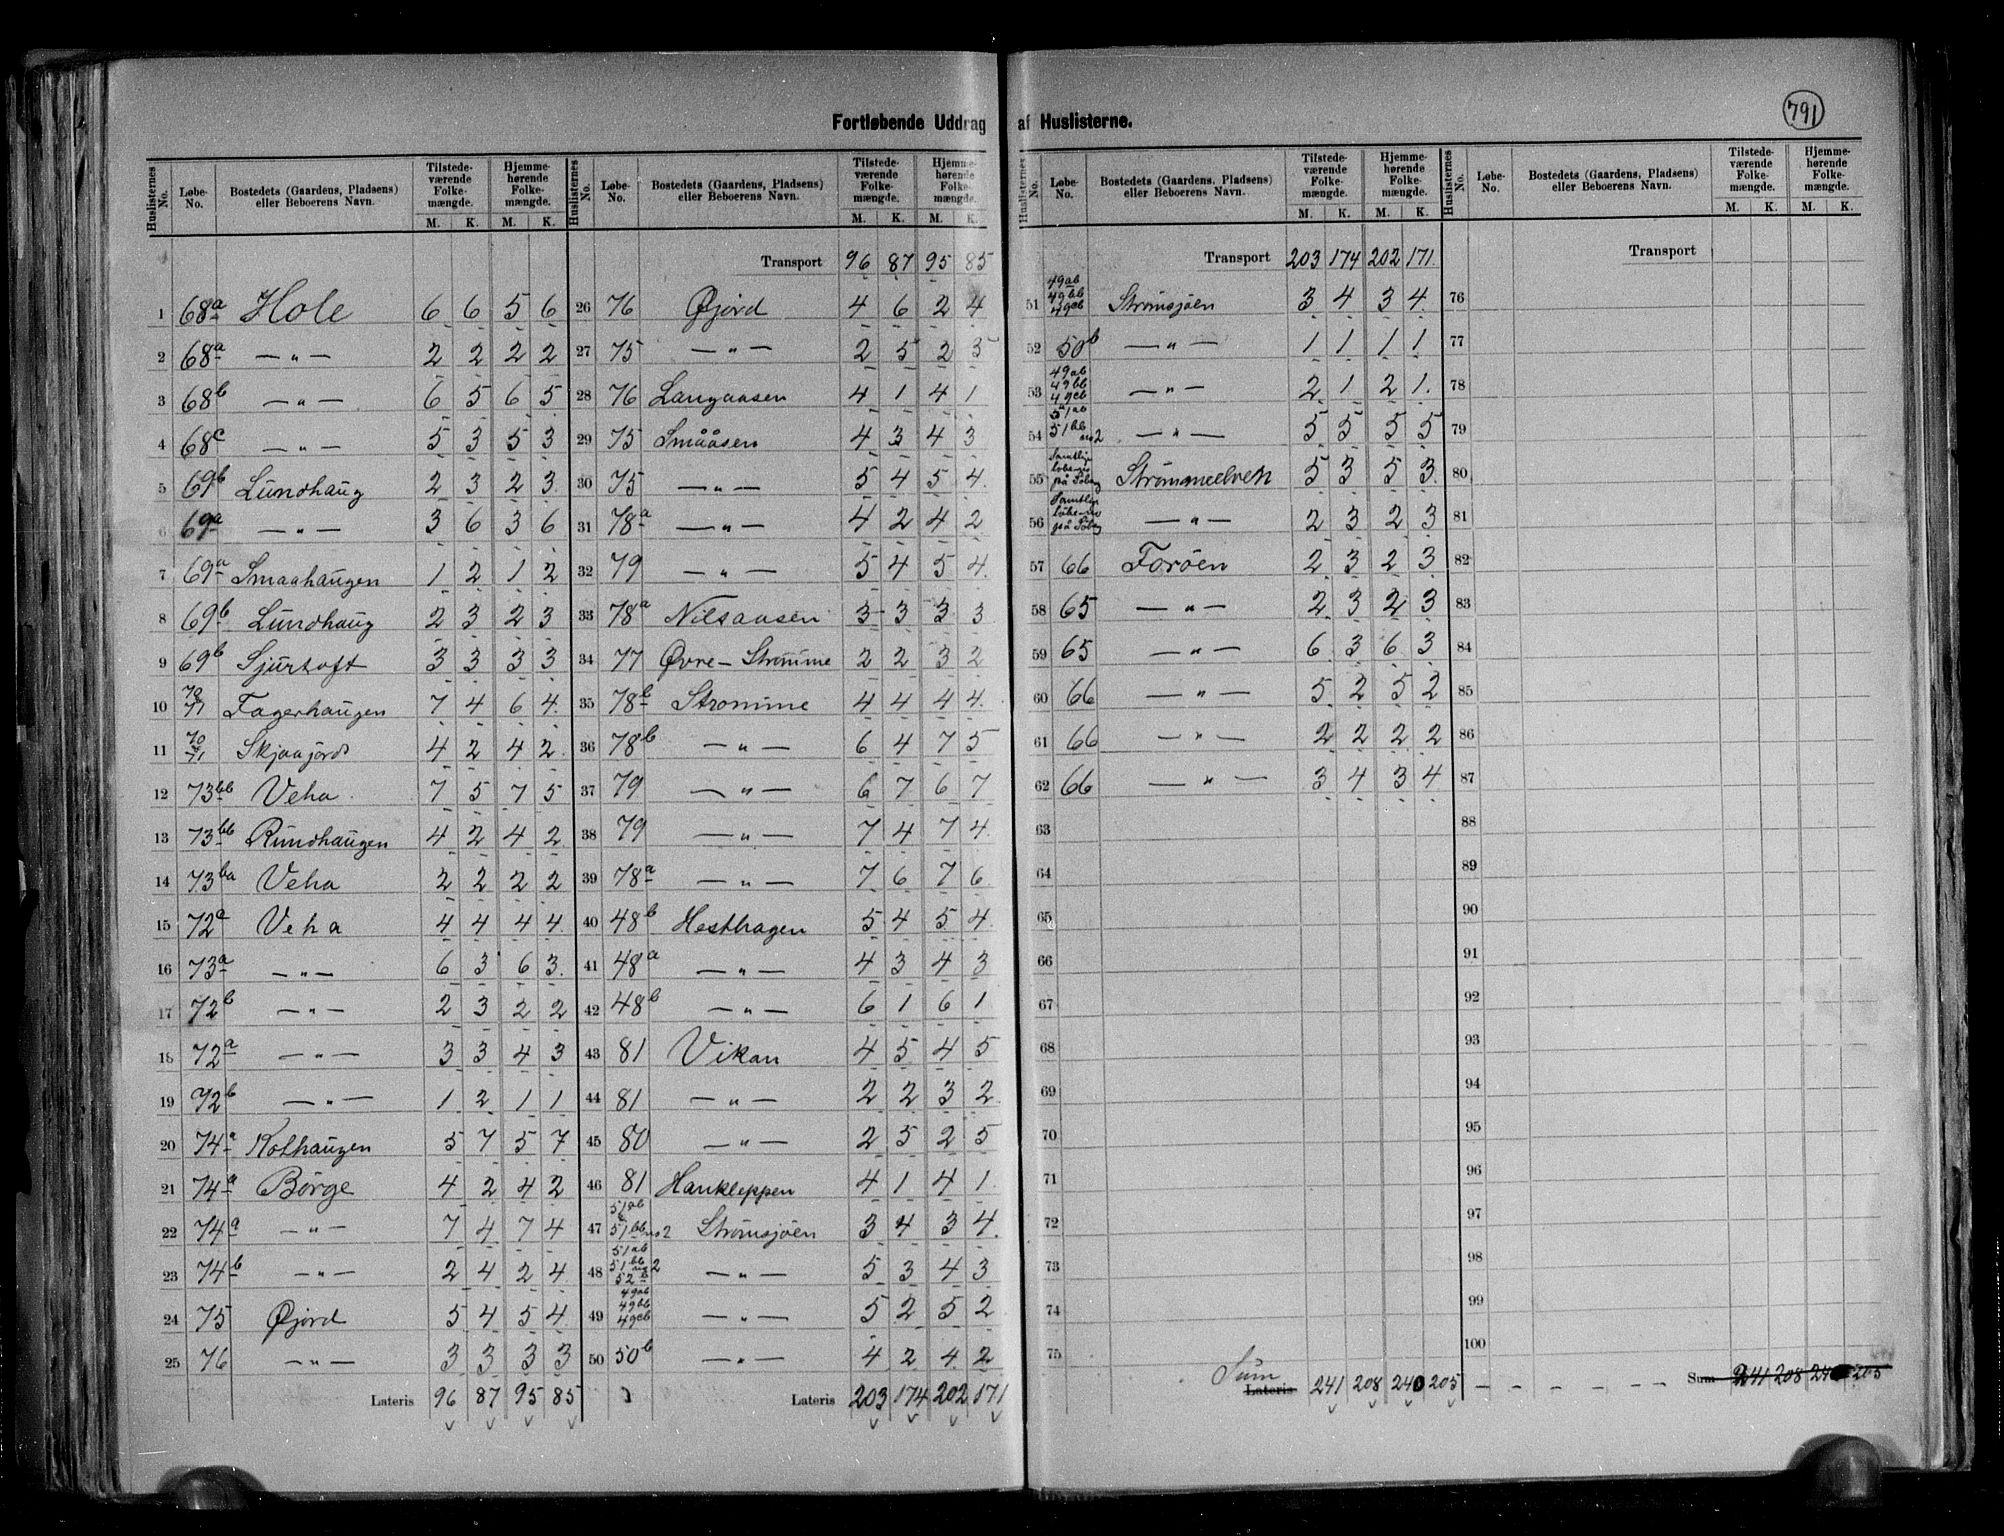 791
Fortløbende Uddrag af Huslisternes.
Huslisternes No. | Løbe-No. | Bostedets (Gaardens, Pladsens) eller Beboerens Navn. | Tilstedeværende Folkemængde. M. K. | Hjemmehørende Folkemængde. M. K.
1 68a Hole 6 6 5 6
2 68a — „ — 2 2 2 2
3 68b — „ — 6 5 6 5
4 68c — „ — 5 3 5 3
5 69b Lundhaug 2 3 2 3
6 69a — „ — 3 6 3 6
7 69a Smaahaugen 1 2 1 2
8 69b Lundhaug 2 3 2 3
9 69b Sjurtoft 3 3 3 3
10 70 71 Fagerhaugen 7 4 6 4
11 70 71 Skjaajord 4 2 4 2
12 73bb Veha 7 5 7 5
13 73bb Rundhaugen 4 2 4 2
14 73ba Veha 2 2 2 2
15 72a Veha 4 4 4 4
16 73a — „ — 6 3 6 3
17 72b — „ — 2 3 2 2
18 72a — „ — 3 3 4 3
19 72b — „ — 1 2 1 1
20 74a Kolhaugen 5 7 5 7
21 74a Börge 4 2 4 2
22 74a — „ — 7 4 7 4
23 74b — „ — 2 4 2 4
24 75 Øjord 5 4 5 4
25 76 — „ — 3 3 3 3
Lateris 96 87 95 85
Huslisternes No. | Løbe-No. | Bostedets (Gaardens, Pladsens) eller Beboerens Navn. | Tilstedeværende Folkemængde. M. K. | Hjemmehørende Folkemængde. M. K.
Transport 96 87 95 85
26 76 Øjord 4 6 2 4
27 75 — „ — 2 5 2 5
28 76 Langaasen 4 1 4 1
29 75 Smååsen 4 3 4 3
30 75 — „ — 5 4 5 4
31 78a — „ — 4 2 4 2
32 79 — „ — 5 4 5 4
33 78a Nilsaasen 3 3 3 3
34 77 Øvre-Strömme 2 2 3 2
35 78b Strömme 4 4 4 4
36 78b — „ — 6 4 7 5
37 79 — „ — 6 7 6 7
38 79 — „ — 7 4 7 4
39 78a — „ — 7 6 7 6
40 48b Hesthagen 5 4 5 4
41 48a — „ — 4 3 4 3
42 48b — „ — 6 1 6 1
43 81 Vikan 4 5 4 5
44 81 — „ — 2 2 3 2
45 80 — „ — 2 5 2 5
46 81 Haukleppen 4 1 4 1
47 51ab & 51bb no 2 Strömsjöen 3 4 3 4
48 51ab 51bb no 2 52b — „ — 5 3 4 3
49 49ab 49bb 49cb — „ — 5 2 5 2
50 50b — „ — 4 2 4 2
Lateris 203 174 202 171
Huslisternes No. | Løbe-No. | Bostedets (Gaardens, Pladsens) eller Beboerens Navn. | Tilstedeværende Folkemængde. M. K. | Hjemmehørende Folkemængde. M. K.
Transport 203 174 202 171
51 49ab 49bb 49cb Strömsjöen 3 4 3 4
52 50b — „ — 1 1 1 1
53 49ab 49bb 49cb — „ — 2 1 2 1
54 51ab 51bb no 2 — „ — 5 5 5 5
55 Samtlige löbe-no på Söberg Strömmeelven 5 3 5 3
56 Samtlige löbe-no på Söberg — „ — 2 3 2 3
57 66 Foröen 2 3 2 3
58 65 — „ — 2 3 2 3
59 65 — „ — 6 3 6 3
60 66 — „ — 5 2 5 2
61 66 — „ — 2 2 2 2
62 66 — „ — 3 4 3 4
63
64
65
66
67
68
69
70
71
72
73
74
75
Sum Lateris 241 208 240 205
Huslisternes No. | Løbe-No. | Bostedets (Gaardens, Pladsens) eller Beboerens Navn. | Tilstedeværende Folkemængde. M. K. | Hjemmehørende Folkemængde. M. K.
Transport
76
77
78
79
80
81
82
83
84
85
86
87
88
89
90
91
92
93
94
95
96
97
98
99
100
Sum 241 208 240 205